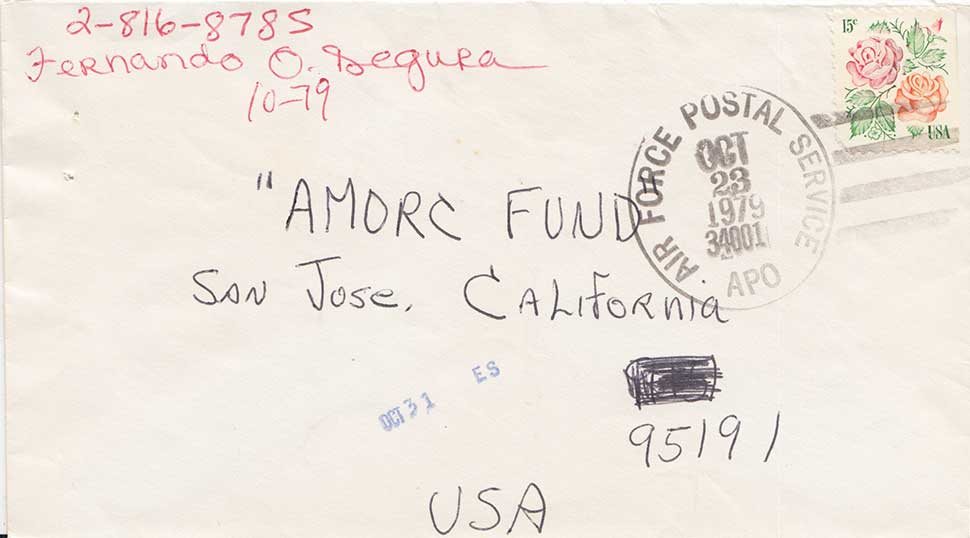 2-816-8785
Fernando O. Segura
10-79
15c
USA
AIR FORCE POSTAL SERVICE
OCT
23
1979
34001
APO
"AMORC FUND
SAN JOSE, CALIFORNIA
OCT 31 ES
95191
USA